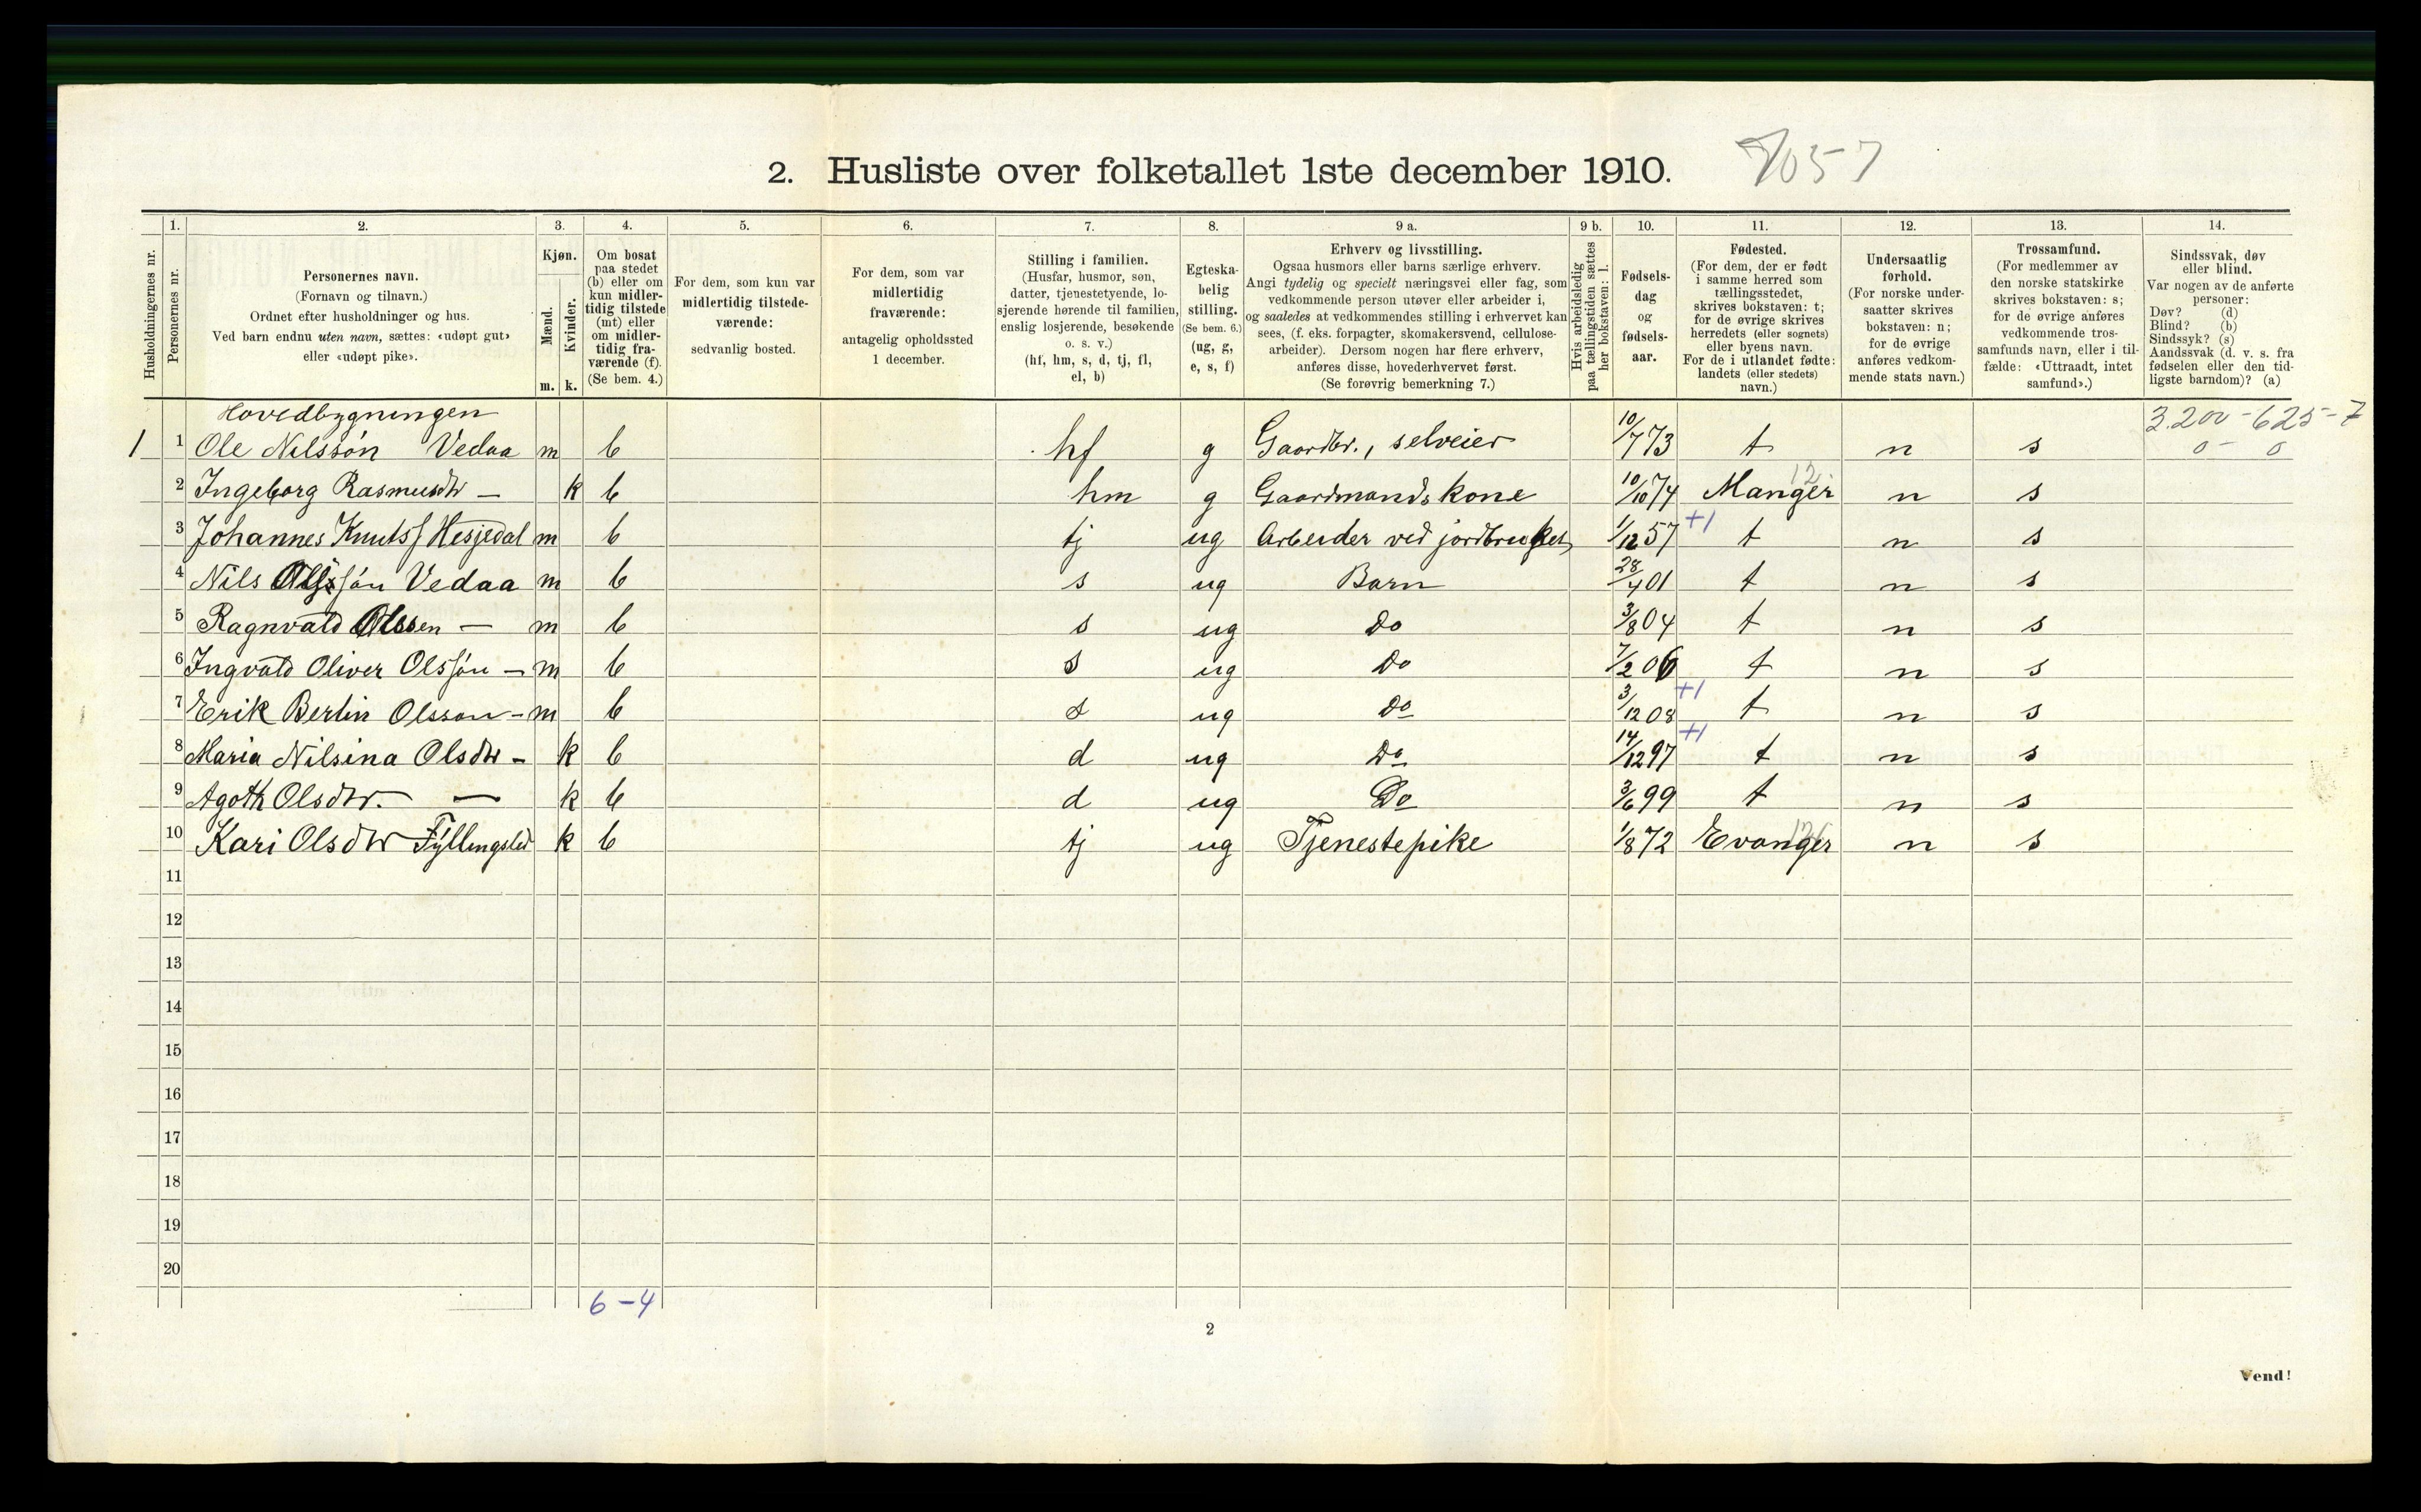 2. Husliste over folketallet 1ste december 1910. 7057
1. 2. 3. 4. 5. 6. 7. 8. 9 a. 9 b. 10. 11. 12. 13. 14.
Husholdningernes nr.
Personernes nr.
Personernes navn.
(Fornavn og tilnavn.)
Ordnet efter husholdninger og hus.
Ved barn endnu uten navn, sættes: «udøpt gut»
eller «udøpt pike».
Kjøn.
Mænd.
Kvinder.
m. k.
Om bosat
paa stedet
(b) eller om
kun midler-
tidig tilstede
(mt) eller
om midler-
tidig fra-
værende (f).
(Se bem. 4.)
For dem, som kun var
midlertidig tilstede-
værende:
sedvanlig bosted.
For dem, som var
midlertidig
fraværende:
antagelig opholdssted
1 december.
Stilling i familien.
(Husfar, husmor, søn,
datter, tjenestetyende, lo-
sjerende hørende til familien,
enslig losjerende, besøkende
o. s. v.)
(hf, hm, s, d, tj, fl,
el, b)
Egteska-
belig
stilling.
(Se bem. 6.)
(ug, g,
e, s, f)
Erhverv og livsstilling.
Ogsaa husmors eller barns særlige erhverv.
Angi tydelig og specielt næringsvei eller fag, som
vedkommende person utøver eller arbeider i,
og saaledes at vedkommendes stilling i erhvervet kan
sees, (f. eks. forpagter, skomakersvend, cellulose-
arbeider). Dersom nogen har flere erhverv,
anføres disse, hovederhvervet først.
(Se forøvrig bemerkning 7.)
Hvis arbeidsledig
paa tællingstiden sættes
her bokstaven: l.
Fødsels-
dag
og
fødsels-
aar.
Fødested.
(For dem, der er født
i samme herred som
tællingsstedet,
skrives bokstaven: t;
for de øvrige skrives
herredets (eller sognets)
eller byens navn.
For de i utlandet fødte:
landets (eller stedets)
navn.)
Undersaatlig
forhold.
(For norske under-
saatter skrives
bokstaven: n;
for de øvrige
anføres vedkom-
mende stats navn.)
Trossamfund.
(For medlemmer av
den norske statskirke
skrives bokstaven: s;
for de øvrige anføres
vedkommende tros-
samfunds navn, eller i til-
fælde: «Uttraadt, intet
samfund».)
Sindssvak, døv
eller blind.
Var nogen av de anførte
personer:
Døv? (d)
Blind? (b)
Sindssyk? (s)
Aandssvak (d. v. s. fra
fødselen eller den tid-
ligste barndom)? (a)
Hovedbygningen 3.200 - 625 - 7
1 1 Ole Nilssøn Vedaa m b hf g Gaardbr., selveier 10/7 73 t n s 0 - 0
2 Ingeborg Rasmusdtr — k b hm g Gaardmandskone 10/10 74 Manger 12 n s
3 Johannes Knuts f Hesjedal m b tj ug Arbeider ved jordbruket 1/12 57 +1 t n s
4 Nils Olssøn Vedaa m b s ug Barn 28/4 01 t n s
5 Ragnvald Olssen — m b s ug Do 3/8 04 t n s
6 Ingvald Oliver Olssøn — m b s ug Do 7/2 06 t n s
7 Erik Bertin Olsson — m b s ug Do 3/12 08 +1 t n s
8 Maria Nilsina Olsdtr — k b d ug Do 14/12 97 +1 t n s
9 Agoth Olsdtr. — k b d ug Do 3/6 99 t n s
10 Kari Olsdtr Fyllingslid k b tj ug Tjenestepike 1/8 72 Evanger 12 n s
11
12
13
14
15
16
17
18
19
20
6 - 4
2
Vend!